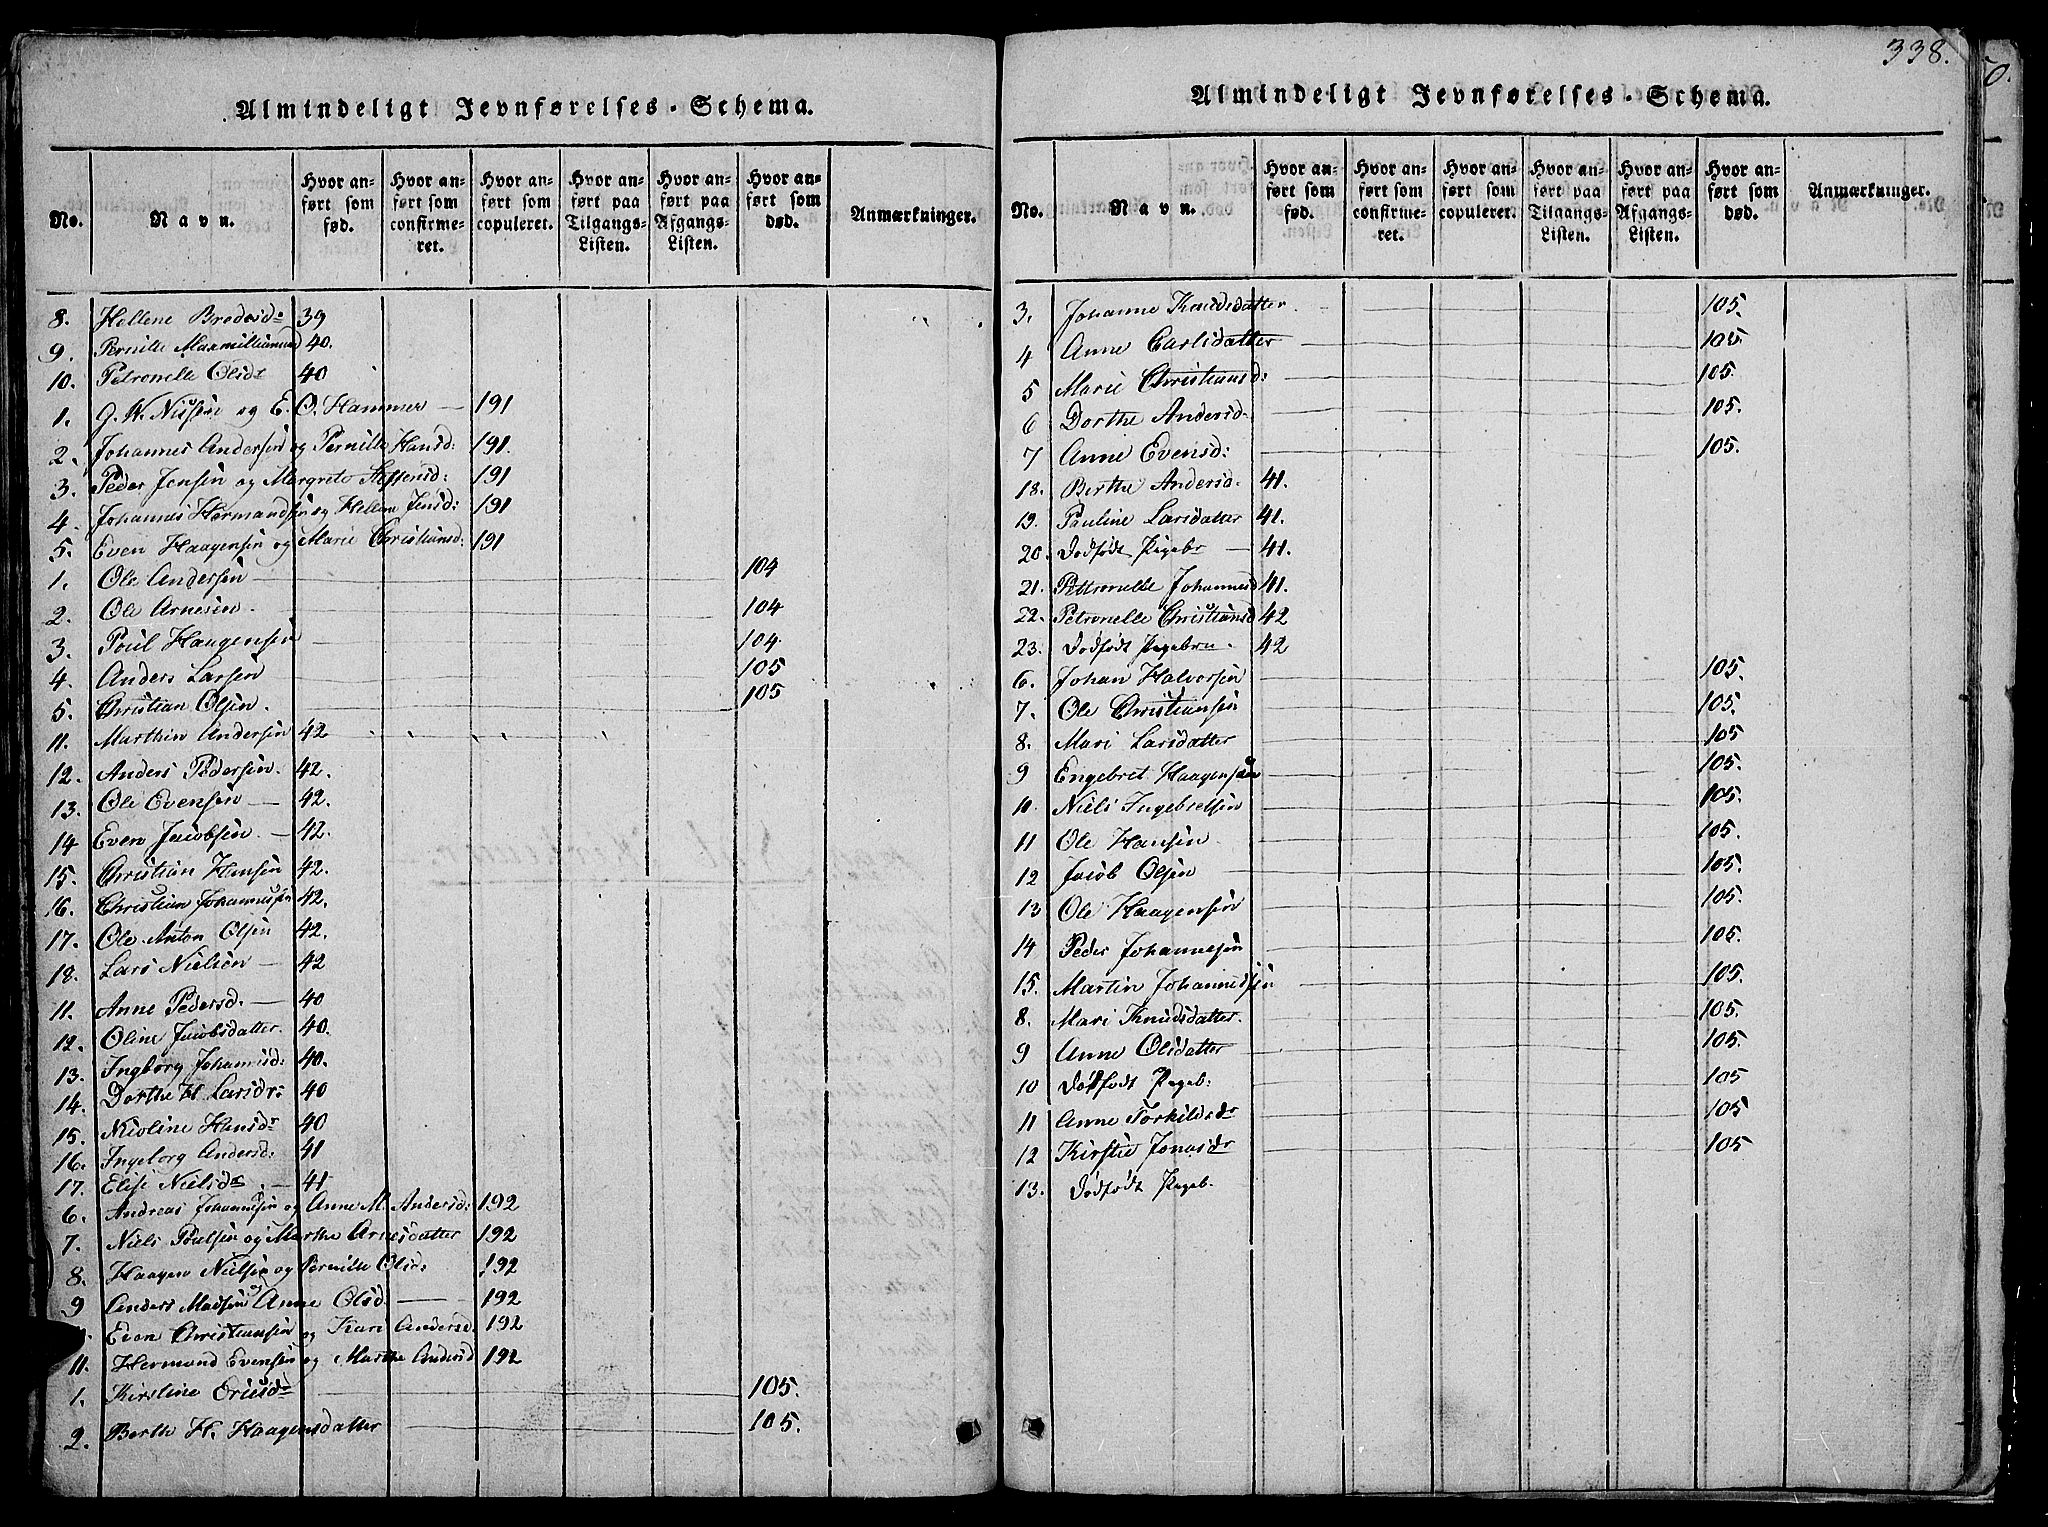 Almindeligt Jevnførelses-Schema.
No. Navn. Hvor anført som fød. Hvor anført som confirmeret. Hvor anført som copuleret. Hvor anført paa Tilgangs-Listen. Hvor anført paa Afgangs-Listen. Hvor anført som død. Anmærkninger.
8. Hellene Bredesdr 39
9. Pernille Maxmilliansd 40.
10. Petronelle Olsdr 40
1. J. W. Nissen og E. O. Hammer — 191
2. Johannes Andersen og Pernille Hansd: 191.
3. Peder Jensen og Margrete Steffensd: 191
4. Johannes Hermandsen og Hellene Jensd: 191
5. Even Haagensen og Marie Christiansd: 191
1. Ole Andersen 104
2. Ole Arnesen 104
3. Poul Haagensen 104.
4. Anders Larsen 105
5. Christian Olsen. 105
11. Marthin Andersen 42
12. Anders Pedersen. 42.
13. Ole Evensen — 42.
14 Even Jacobsen. — 42.
15. Christian Hansen 42.
16. Christian Johannessen 42.
17. Ole Anton Olsen 42.
18. Lars Nielsen — 42
11. Anne Pedersd. — 40
12. Oline Jacobsdatter. 40.
13. Ingborg Johannesd: 40.
14. Dorthe H. Larsdr: 40
15. Nicoline Hansdr 40
16. Ingeborg Andersd: 41
17. Elise Nielsdr. — 41
6. Andreas Johannesen og Anne M. Andersd: 192
7. Niels Poulsen og Marthe Arnesdatter 192
8. Haagen Nielsen og Pernille Olsdr: 192
9 Anders Madsen og Anne Olsd. — 192
Even Christiansen og Kari Andersd. 192
11. Hermand Evensen og Marthe Andersd 192
1. Kirstine Ericsdr 105.
2. Berth H. Haagensdatter 105.
338.
Almindeligt Jevnførelses-Schema.
No. Navn. Hvor anført som fød. Hvor anført som confirmeret. Hvor anført som copuleret. Hvor anført paa Tilgangs-Listen. Hvor anført paa Afgangs-Listen. Hvor anført som død. Anmærkninger.
3. Johanne Knudsdatter. 105.
4 Anne Carlsdatter 105.
5 Marie Christiansd: 105.
6 Dorthe Andersd. 105.
7 Anne Evensd: 105.
18. Berthe Andersd. 41.
19. Pauline Larsdatter 41.
20. Dødfødt Pigebr — 41.
21. Pettronelle Johannesd 41.
22. Petronelle Christiansd 42
23. Dødfødt Pigebrn. 42
6. Johan Halvorsen 105.
7. Ole Christiansen 105.
8. Mari Larsdatter 105
9 Engebret Haagensen 105.
10. Niels Ingebretsen 105.
11 Ole Hansen 105.
12 Jacob Olsen 105.
13 Ole Haagensen 105.
14 Peder Johannesen 105.
15. Martin Johannessen 105.
8. Mari Knudsdatter. 105.
9 Anne Olsdatter 105.
10 Dødfødt Pigeb: 105
11 Anne Torkildsdr 105
12 Kirstie Jonasdr 105
13. Dødfødt Pigeb.